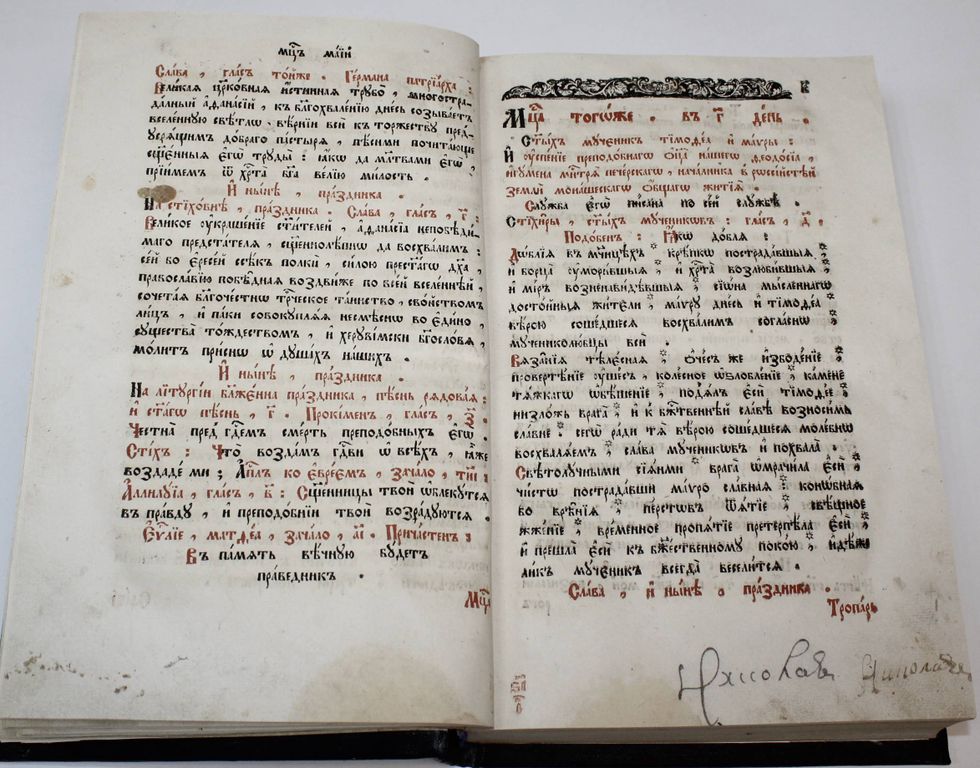 мц҃ъ маїй
Сла́ва , гла́съ то́йже . Ге́рмана патрїа́рха :
Вели́кая цр҃ко́вная и҆́стинная трубо̀ , многостра-
да́лный а҆ѳана́сїй , къ бл҃гохвале́нїю дне́сь созыва́етъ
вселе́нную свѣ́тлѡ . вѣ́рнїи всѝ къ торжествꙋ̀ пред̾-
ꙋсря́щимъ до́браго па́стыря , пѣ́сньми почита́юще
сщ҃е́нныя є҆гѡ̀ трꙋды̀ : ꙗ҆́кѡ да мл҃твами є҆гѡ̀ ,
прїи́мемъ ѿ хр҃та̀ бг҃а ве́лїю ми́лость .
И҆ ны́нѣ , пра́здника .
На стїхо́внѣ , пра́здника . Сла́ва , гла́съ , г҃ :
Вели́кое ᲂу҆краше́нїе ст҃и́телей , а҆ѳана́сїа непобѣди́-
маго предста́теля , сщ҃еннолѣ́пнѡ да восхва́лимъ :
се́й бо є҆ресе́й сѣ́къ полкѝ , си́лою прест҃а́гѡ дх҃а ,
правосла́вїю побѣ́дная воздви́же по всѐй вселе́ннѣй ,
сочета́я бл҃гоче́стнѡ тр҃ческое та́инство , сво́йствомъ
ли́цъ , и҆ па́ки совокꙋпля́я несмѣ́снѡ во є҆ди́но ,
сꙋщества̀ то́ждествомъ , и҆ херꙋві́мски бг҃осло́вя ,
мо́литъ при́снѡ ѡ҆ дꙋша́хъ на́шихъ .
И҆ ны́нѣ , пра́здника .
На лїтꙋргі́и бл҃же́нна пра́здника , пѣ́снь рядова́я :
и҆ ст҃а́гѡ пѣ́снь , г҃ . Проки́менъ , гла́съ , з҃ .
Честна̀ пред̾ гд҃емъ сме́рть преподо́бныхъ є҆гѡ̀ .
Сті́хъ : Что̀ возда́мъ гд҃ви ѡ҆ всѣ́хъ , ꙗ҆́же
воздаде́ ми ; А҆п҃лъ ко є҆вре́емъ , зача́ло , тл҃и :
А҆ллилꙋ́їа , гла́съ , в҃ : Сщ҃е́нницы твоѝ ѡ҆блекꙋ́тся
въ пра́вдꙋ , и҆ преподо́бнїи твоѝ возра́дꙋются .
Є҆ѵ҃лїе , матѳе́а , зача́ло , а҃і . Прича́стенъ :
Въ па́мять вѣ́чнꙋю бꙋ́детъ
пра́ведникъ .
Мц҃а
Мц҃а тогѡ́же . въ г҃ де́нь .
С҃ты́хъ мꙋ́ченикъ тїмоѳе́а и҆ ма́ѵры :
И҆ ᲂу҆спе́нїе преподо́бнагѡ ѻ҆ц҃а̀ на́шегѡ ѳеодо́сїа ,
и҆гꙋ́мена мн҃тря̀ пече́рскагѡ , нача́лника в̾ рѡссі́йстѣй
землѝ мона́шескагѡ ѻ҆́бщагѡ житїѧ̀ .
Слꙋ́жба є҆гѡ̀ пи́сана по се́й слꙋ́жбѣ .
Стїхи́ры , ст҃ы́хъ мꙋ́ченикѡвъ : гла́съ , д҃ .
Подо́бенъ : Ꙗ҆́кѡ до́бля :
До́блїя въ мч҃нцѣхъ * крѣ́пкѡ пострада́вшыя *
и҆ борца̀ ᲂу҆мори́вшыя * и҆ хр҃та̀ возлюби́вшыя *
и҆ мі́ръ возненави́дѣвшыя * сїѡ́на мы́сленнагѡ
досто́йныя жи́тели * ма́ѵрꙋ дне́сь и҆ тїмоѳе́а *
вѣ́рою соше́дшеся восхва́лимъ согла́снѡ *
мꙋчениколю́бцы всѝ .
Вяза́нїя тѣле́сная * ѻ҆че́съ же и҆збоде́нїе *
проверте́нїе ᲂу҆ше́съ , коле́сное ѡ҆зло́бленїе * ка́мене
тя́жкагѡ ѡ҆бѣ́шенїе * под̾я́лъ є҆сѝ тїмоѳе́е *
низло́жь врага̀ * и҆ к̾ бж҃твеннѣй сла́вѣ возноси́мь
сла́вне . сегѡ̀ ра́ди тя̀ вѣ́рою соше́дшеся моле́бнѡ
восхваля́емъ , сла́ва мꙋ́чениковъ и҆ похвала̀ .
Свѣтолꙋ́чными сїѧ́ньми * врага̀ ѡ҆мрачи́ла є҆сѝ *
чи́стѡ пострада́вши ма́ѵро сла́вная : коно́бная
во врѣ́нїя * пе́рстовъ ѿя́тїе * свѣ́щное
жже́нїе * вре́менное пропя́тїе претерпѣ́ла є҆сѝ *
и҆ пре́шла є҆сѝ к̾ бж҃е́ственномꙋ поко́ю * и҆дѣ́же
ли́къ мꙋ́ченикъ всегда̀ весели́тся .
Сла́ва , и҆ ны́нѣ . пра́здника .
Тропа́рь
Николае